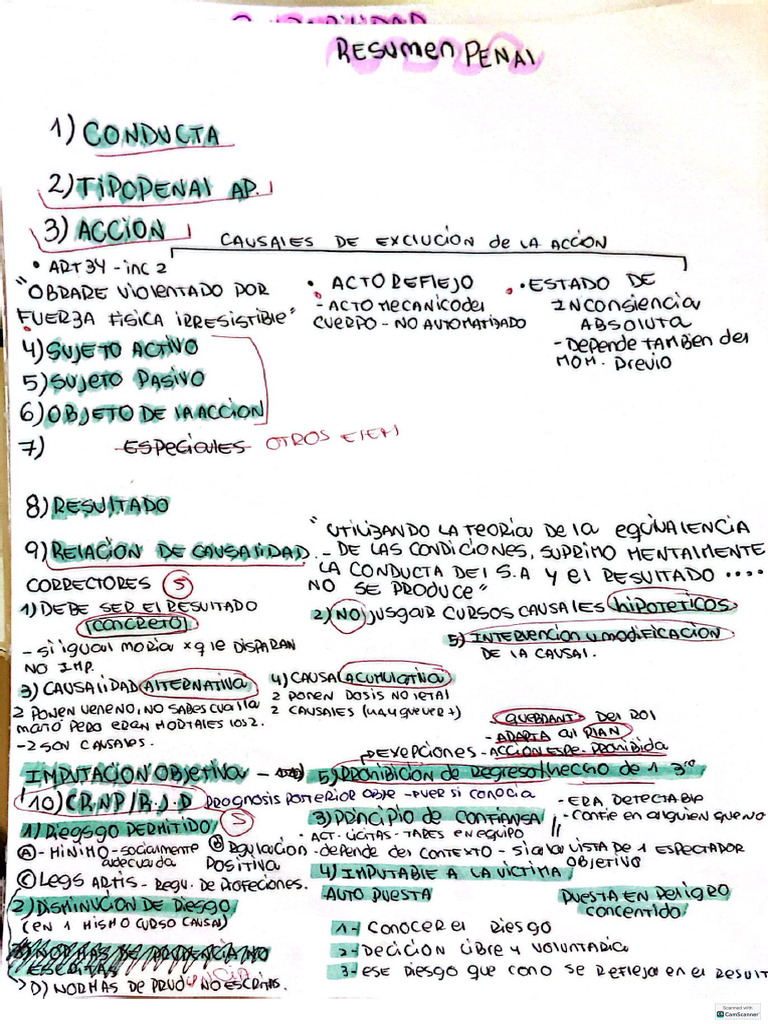 RESUMEN PENAl
1) CONDUCTA
2) TIPO PENAl AP.
3) ACCION
CAUSAlES DE EXClUCION de lA ACCION
• ART 34 - inc 2
"OBRARE VIOlENTADO POR
FUERZA FISICA IRRESISTIBlE"
• ACTO REFlEJO
- ACTO MECANICO del
CUERPO - NO AUTOMATIZADO
• ESTADO DE
INCONSIENCIA
ABSOlUTA
- DEPENDE TAMBIEN DEl
MOM. PREVIO
4) SUJETO ACTIVO
5) SUJETO PASIVO
6) OBJETO DE lA ACCION
7) ESPECIAlES OTROS ElEM
8) RESUlTADO
9) RElACION DE CAUSAlIDAD
"UTILIZANDO LA TEORIA DE lA EQUIVAlENCIA
- DE LAS CONDICIONES, SUPRIMO MENTALMENTE
LA CONDUCTA DEl S.A Y el RESULTADO ....
NO SE PRODUCE"
CORRECTORES 5
1) DEBE SER El RESULTADO
(CONCRETO)
- SI IGUAl MORIA X q lE DISPARAN
NO IMP.
2) NO JUSGAR CURSOS CAUSAlES HIPOTETICOS
5) INTERVENCION y MODIFICACION
DE LA CAUSAl.
3) CAUSALIDAD AlTERNATIVA
2 PONEN VENENO, NO SABES CUAl lA
MATÓ PERO ERAN MORTALES lOS 2.
- 2 SON CAUSAlES.
4) CAUSAl ACUMUlATIVA
2 PONEN DOSIS NO lETAl
2 CAUSAlES (HAY QUE VER +)
QUEBRANT. DEl ROl
- ADAPTA Al PlAN
EXEPCIONES - ACCION ESPE. PROHIBIDA
IMPUTACION OBJETIVA
5) PROHIBICION DE REGRESO/HECHO DE 1 3ro
10) CR.NP/R.J.D PROGNOSIS POSTERIOR OBJE - PUER SI CONOCIA
1) RIESGO PERMITIDO 5
A - MINIMO - socialmente adecuada
B REGULACION POSITIVA
C LEGS ARTIS - REGU. DE PROFECIONES.
3) PRINCIPIO DE CONFIANSA
- ACT. LICITAS - TARES EN EQUIPO
- ERA, DETECTABLE
- CONFIE EN ALGUIEN QUE NO
- DEPENDE DEl CONTEXTO - SI A lA VISTA DE 1 ESPECTADOR
OBJETIVO
4) IMPUTABlE A lA VICTIMA
AUTO PUESTA
PUESTA EN PElIGRO
CONCENTIDO
2) DISMINUCION DE RIESGO
(EN 1 MISMO CURSO CAUSAl)
1- CONOCER El RIESGO
2- DECICION LIBRE Y VOLUNTARIA
3- ESE RIESGO QUE CONO SE REFLEJA EN El RESULT
NORMAS DE PRUDENCIA NO
ESCRITAS
D) NORMAS DE PRUDENCIA NO ESCRITAS.
Scanned with
CamScanner